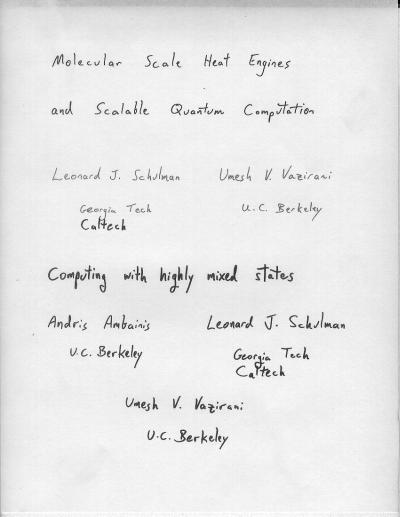 Molecular Scale Heat Engines
and Scalable Quantum Computation
Leonard J. Schulman Umesh V. Vazirani
Georgia Tech U.C. Berkeley
Caltech
Computing with highly mixed states
Andris Ambainis Leonard J. Schulman
U.C. Berkeley Georgia Tech
Caltech
Umesh V. Vazirani
U.C. Berkeley